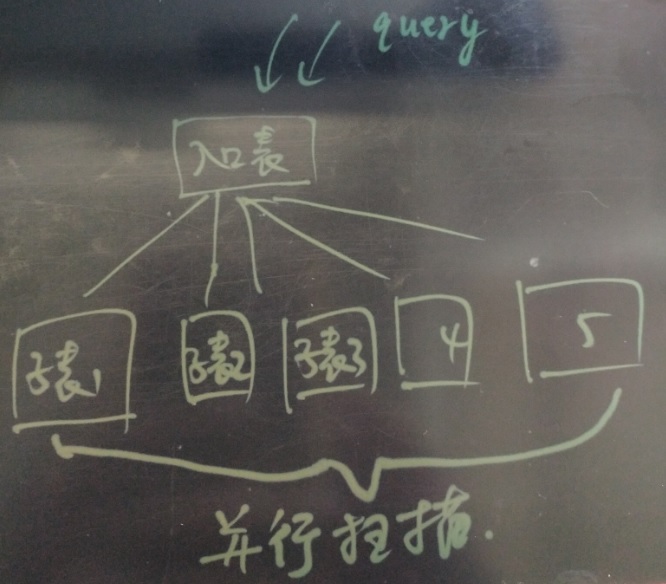 query
入口表
子表1 子表2 子表3 4 5
并行扫描.